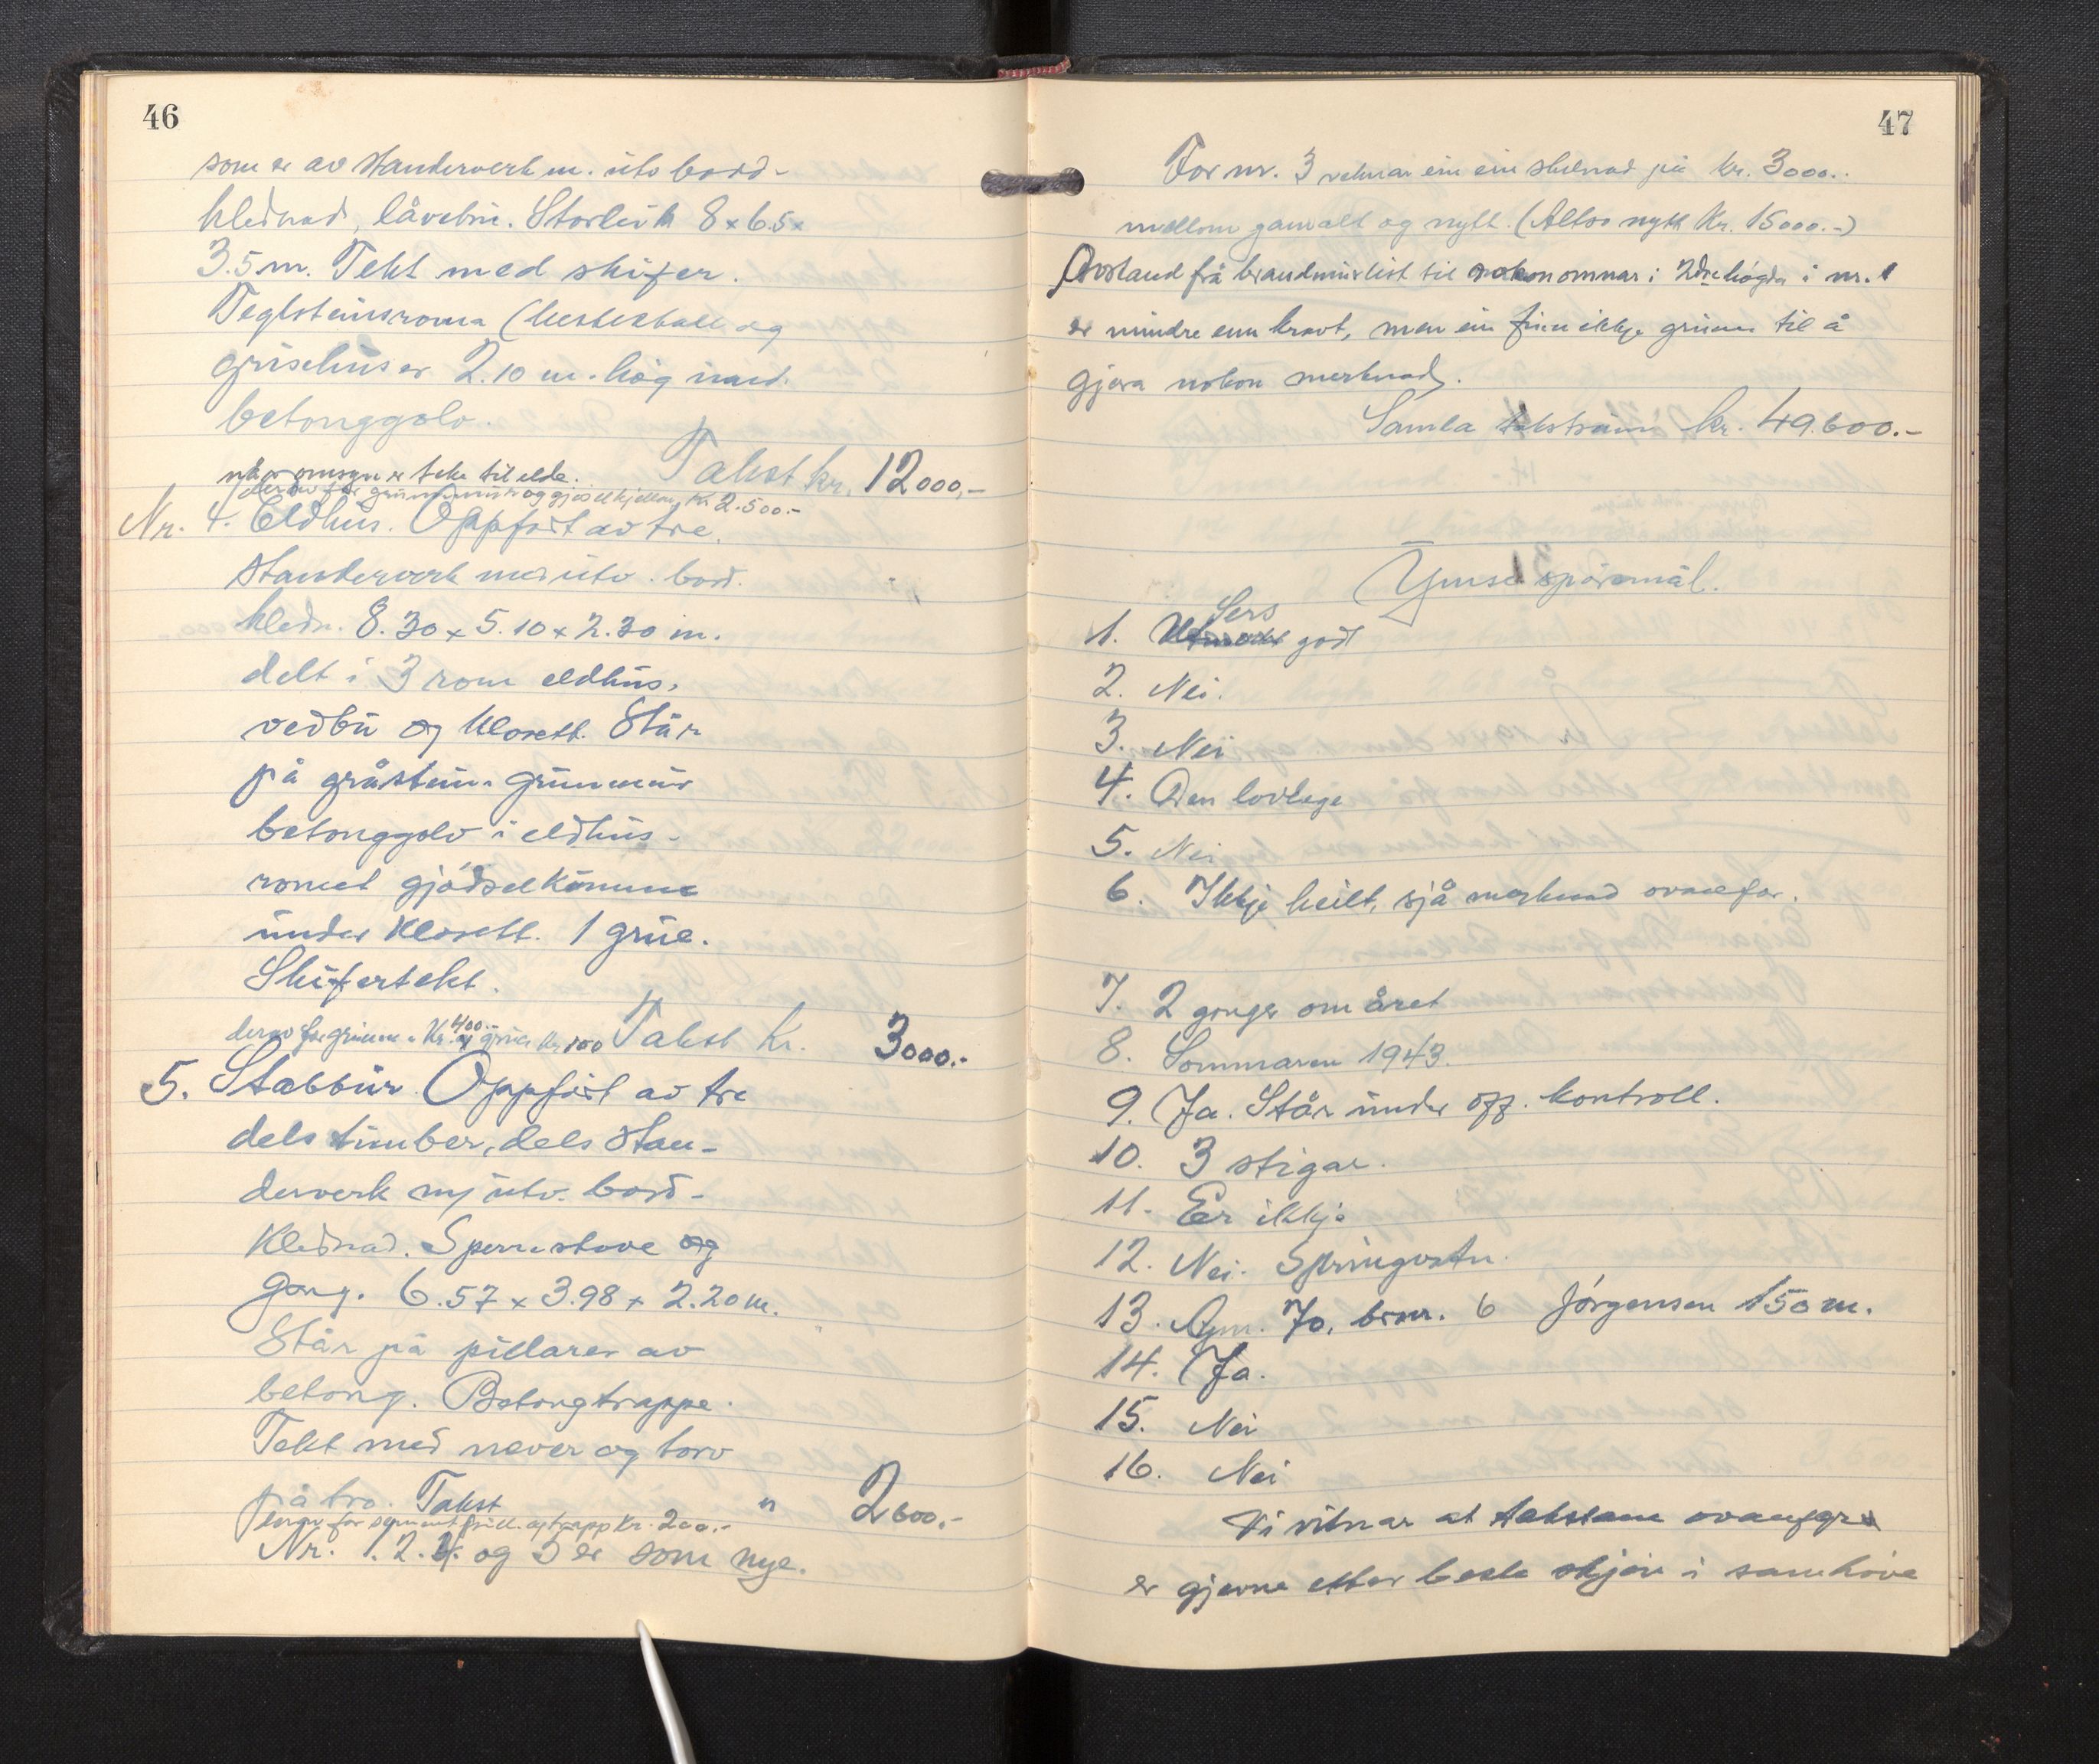 46
som er av standerverk m. utv bord-
klednad, låvebru. Storleik 8 x 6.5 x
3.5 m. Tekt med skifer.
Teglsteinsroma (hestestall og
grisehus er 2.10 m. høg innv.
betonggolv.
når omsyn er teke til elde. Takst kr. 12000,-
derav for grunnmur og gjødselkjellar Kr 2.500.-
Nr. 4. Eldhus. Oppført av tre.
standerverk med utv. bord.
kledn. 8.30 x 5.10 x 2.30 m.
delt i 3 rom eldhus,
vedbu og klosett. Står
på gråstein. grunnmur
betonggolv i eldhus-
romet gjødselkummе
under klosett. 1 grue.
Skifertekt.
derav for grunnm. Kr. 400.- og grue kr 100 Takst Kr. 3000.-
5. Stabbur. Oppført av tre
dels timber, dels stan-
derverk m/ utv. bord-
klednad. Sperrestove og
gang. 6.57 x 3.98 x 2.20 m.
Står på pillarer av
betong. Betongtrappe.
Tekt med never og torv
på tro. Takst " 2600,-
derav for sement pill. og trapp kr. 200.-
Nr. 1. 2. 4. og 5 er som nye.
47
For nr. 3 reknar ein ein skilnad på kr. 3000.-
mellom gamalt og nytt. (Altso nytt Kr. 15000.-)
Avstand frå brandmurlist til omnar i 2dre høgda i nr. 1
er mindre enn kravt, men ein finn ikkje grunn til å
gjera nokon merknad.
Samla takstsum kr. 49.600.-
Ymse spørsmål.
1. Sers godt
2. Nei.
3. Nei
4. Den lovlege
5. Nei
6. Ikkje heilt, sjå merknad ovanfor.
7. 2 gonger om året
8. Sommaren 1943.
9. Ja. Står under off. kontroll.
10. 3 stigar.
11. Er ikkje
12. Nei. Springvatn.
13. Gnr. 70, brnr. 6 Jørgensen 150 m.
14. Ja.
15. Nei
16. Nei
Vi vitnar at takstane ovanfor
er gjevne etter beste skjøn i samhøve